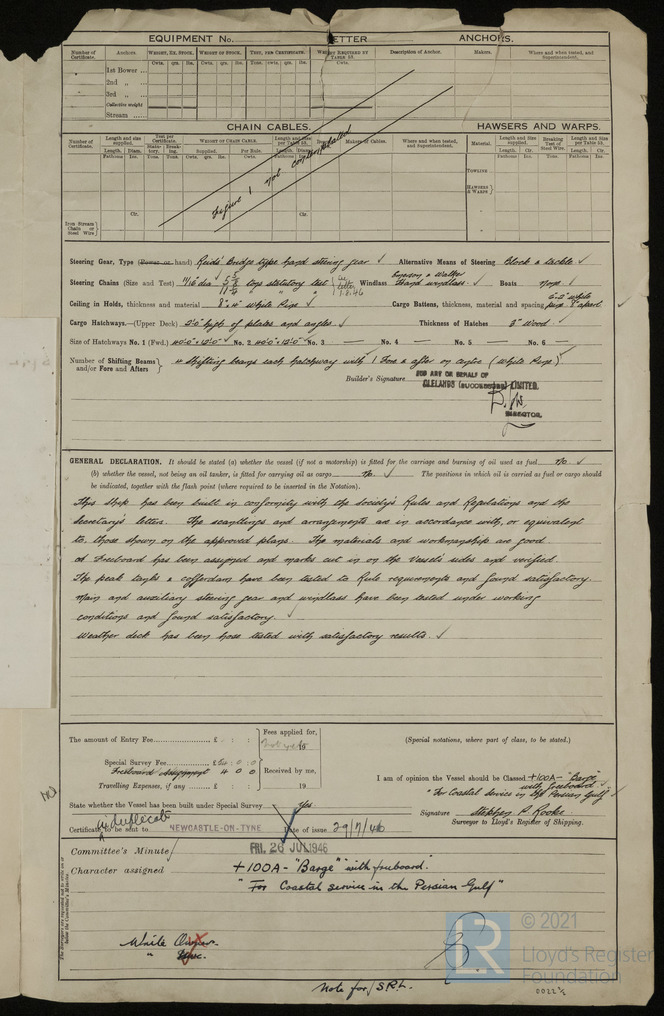 EQUIPMENT No. LETTER ANCHORS.
Number of Certificate. Anchors. WEIGHT, EX. STOCK. WEIGHT OF STOCK. TEST, PER CERTIFICATE. WEIGHT REQUIRED BY TABLE 53. Description of Anchor. Makers. Where and when tested, and Superintendent.
Cwts. qrs. lbs. Cwts. qrs. lbs. Tons. cwts. qrs. lbs. Cwts.
1st Bower ...
2nd „ ...
3rd „ ...
Collective weight
Stream ...
CHAIN CABLES. HAWSERS AND WARPS.
Number of Certificate. Length and size supplied. Test per Certificate. WEIGHT OF CHAIN CABLE. Length and size per Table 53. Makers of Cables. Where and when tested, and Superintendent. Material. Length and size supplied. Breaking Test of Steel Wire. Length and size per Table 53.
Length. Diam. Statutory. Breaking. Supplied. Per Rule. Length. Diam. Length. Cir. Length. Cir.
Fathoms Ins. Tons. Tonsk. Cwts. qrs. lbs. Cwts. Fathoms Ins. Fathoms Ins. Tons. Fathoms Ins.
Figure 1 not contemplated
TOWLINE
HAWSERS & WARPS
Cir. Cir.
Iron Stream Chain or Steel Wire
Steering Gear, Type (Power or hand) Reids' Bridge type hand steering gear ✓ Alternative Means of Steering Block & tackle ✓
Steering Chains (Size and Test) 11/16" dia tons statutory test Letter 1.8.46 Windlass Emerson & Walker Hand windlass. ✓ Boats None ✓
Ceiling in Holds, thickness and material 2½" White Pine ✓ Cargo Battens, thickness, material and spacing 6"×2" white pine 9" apart
Cargo Hatchways.—(Upper Deck) 2'0" high of plates and angles ✓ Thickness of Hatches 3" Wood ✓
Size of Hatchways No. 1 (Fwd.) 40'0" × 12'0" ✓ No. 2 40'0" × 12'0" ✓ No. 3 — No. 4 — No. 5 — No. 6 —
Number of Shifting Beams and/or Fore and Afters 4 Shifting beams each hatchway with 1 Fore & after on centre (White Pine) ✓
Builder's Signature FOR ANY ON BEHALF OF
CLELANDS (SUCCESSORS) LIMITED.
DIRECTOR.
GENERAL DECLARATION. It should be stated (a) whether the vessel (if not a motorship) is fitted for the carriage and burning of oil used as fuel No. ✓
(b) whether the vessel, not being an oil tanker, is fitted for carrying oil as cargo No. ✓ The positions in which oil is carried as fuel or cargo should
be indicated, together with the flash point (where required to be inserted in the Notation).
This ship has been built in conformity with the society's Rules and Regulations and the
secretary's letters. The scantlings and arrangements are in accordance with, or equivalent
to, those shown on the approved plans. The materials and workmanship are good.
A Freeboard has been assigned and marks cut in on the vessel's sides and verified.
The peak tanks & cofferdam have been tested to Rule requirements and found satisfactory.
Main and auxiliary steering gear and windlass have been tested under working
conditions and found satisfactory. ✓
Weather deck has been hose tested with satisfactory results. ✓
The amount of Entry Fee £ : :
Fees applied for,
19
(Special notations, where part of class, to be stated.)
Special Survey Fee £ : 0 : 0
Freeboard Assignment 4 0 0
Received by me,
Travelling Expenses, if any £ : : 19
I am of opinion the Vessel should be Classed +100A- "Barge"
with freeboard
"For Coastal service in the Persian Gulf" ✓
State whether the Vessel has been built under Special Survey Yes
Signature Stephen P. Rooke
Surveyor to Lloyd's Register of Shipping.
in duplicate
Certificate to be sent to NEWCASTLE-ON-TYNE Date of issue 29/7/46
Committee's Minute FRI. 26 JUL 1946
Character assigned +100A- "Barge" with freeboard.
"For Coastal service in the Persian Gulf"
Write Owner.
"
© 2021
LR Lloyd's Register
Foundation
Note for S.R.L.